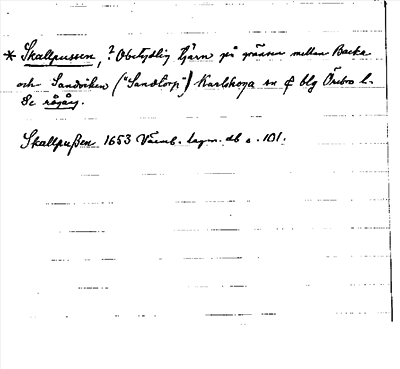 * Skallpussen, ? Obetydlig tjärn på gränsen mellan Backa
och Sandviken ("Sandtorp") Karlskoga sn & blg Örebro l.
Se rågång.
Skallpußen 1653 Värml. lagm. db s. 101.